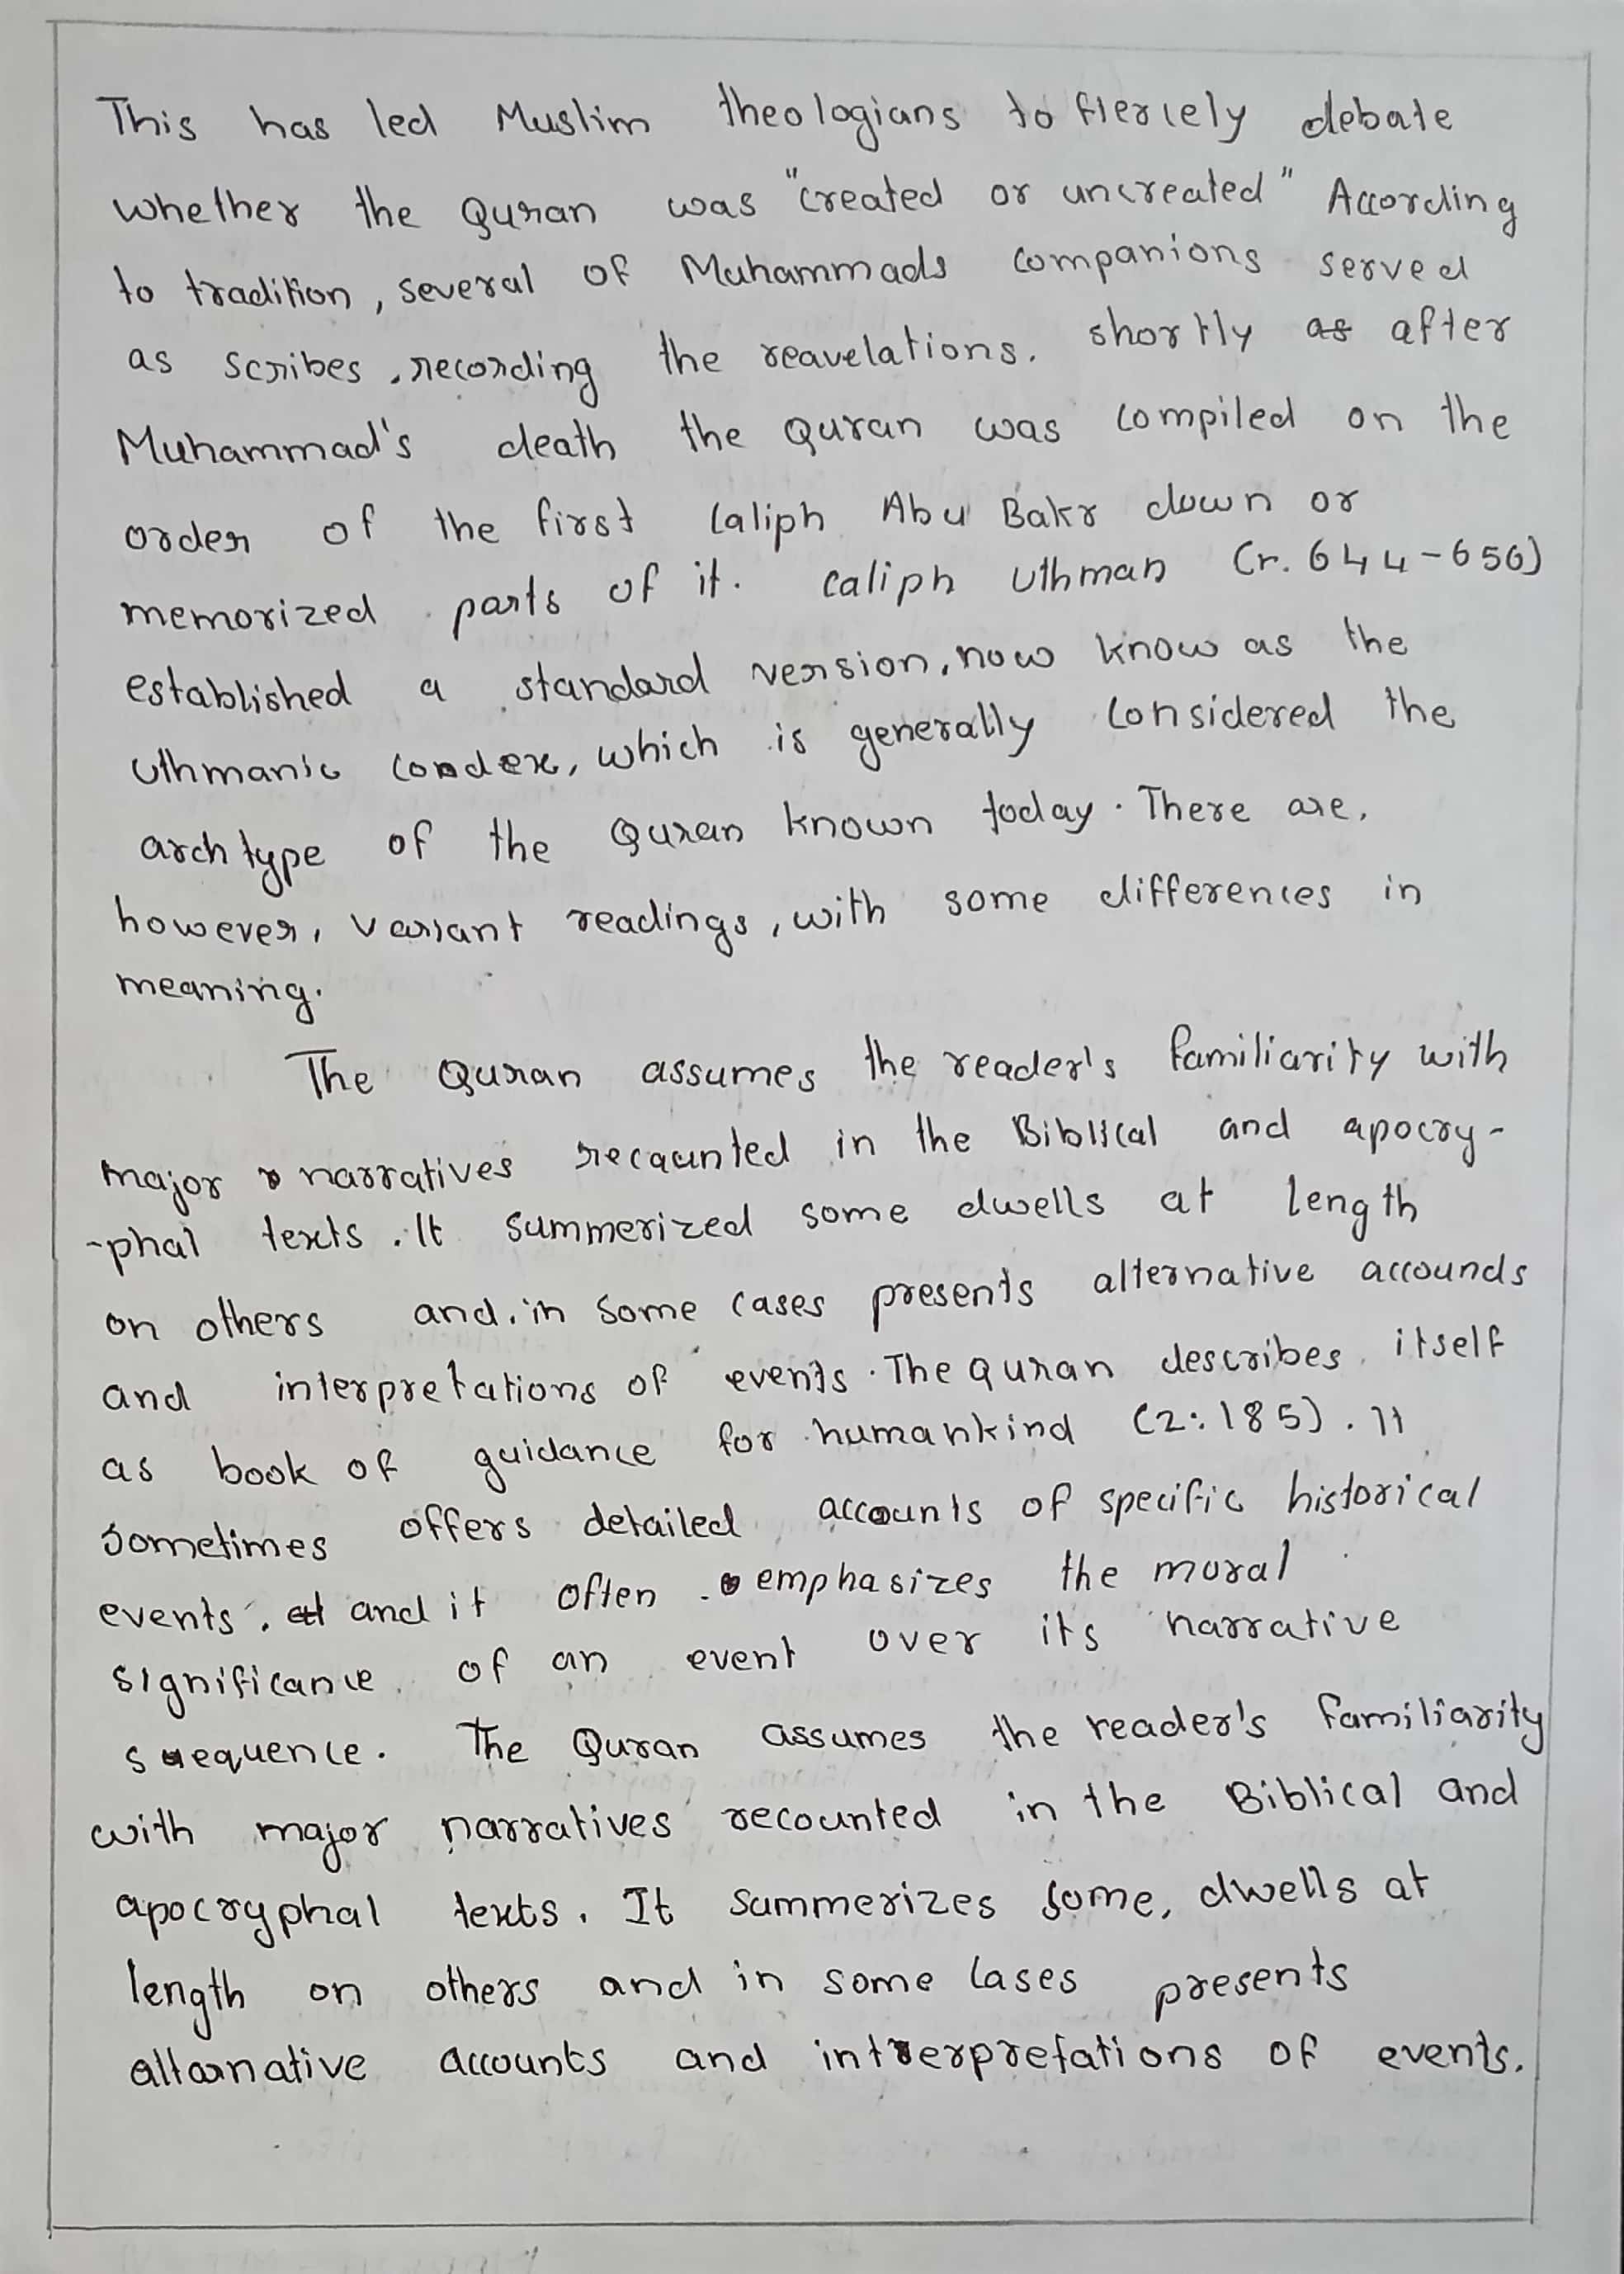 This has led Muslim theologians to fiercely debate
whether the Quran was "created or uncreated" According
to tradition, several of Muhammads companions served
as scribes, recording the reavelations. shortly as after
Muhammad's death the Quran was compiled on the
order of the first caliph Abu Bakr down or
memorized parts of it. caliph Uthman (r. 644-656)
established a standard version, now know as the
Uthmanic condex, which is generally considered the
archtype of the Quran known today. There are,
however, variant readings, with some differences in
meaning.
The Quran assumes the reader's familiarity with
major narratives recaunted in the Biblical and apocry-
-phal texts. It summerized some dwells at length
on others and, in some cases presents alternative accounds
and interpretations of events. The quran describes itself
as book of guidance for humankind (2:185). It
sometimes offers detailed accounts of specific historical
events, and it often emphasizes the moral
significance of an event over its narrative
sequence. The Quran assumes the reader's familiarity
with major narratives recounted in the Biblical and
apocryphal texts. It summerizes some, dwells at
length on others and in some cases presents
alternative accounts and interpretations of events.